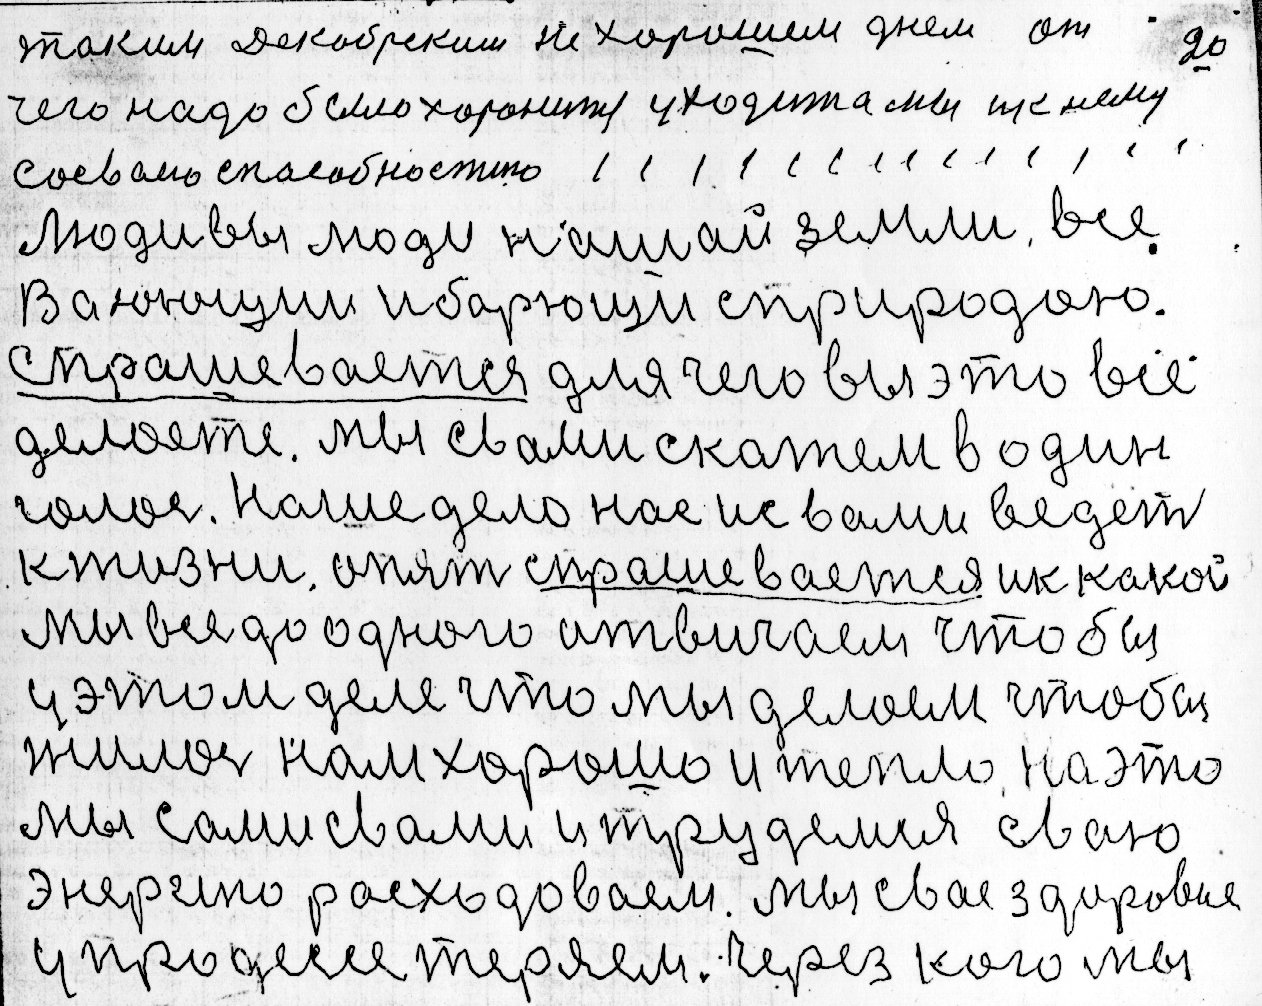 таким декабрским не хорошем днем от 20
чего надо было хоронитц уходитамы ик нему
соеваю способностию
Люди вы люди нашай земли, все
Ваюющии и борющии сприродою.
спрашевается для чего вы это всё
делаете. мы свами скажем в один
голос. Наше дело нас ис вами ведет
к жизни, опят спрашевается ик какой
мы все до одного атвичаем чтобы
у этом деле что мы делаем чтобы
жилос нам хорошо и тепло. На это
мы сами свами и трудемся сваю
энергию расходоваем. мы свае здоровие
у процессе теряем. Через кого мы